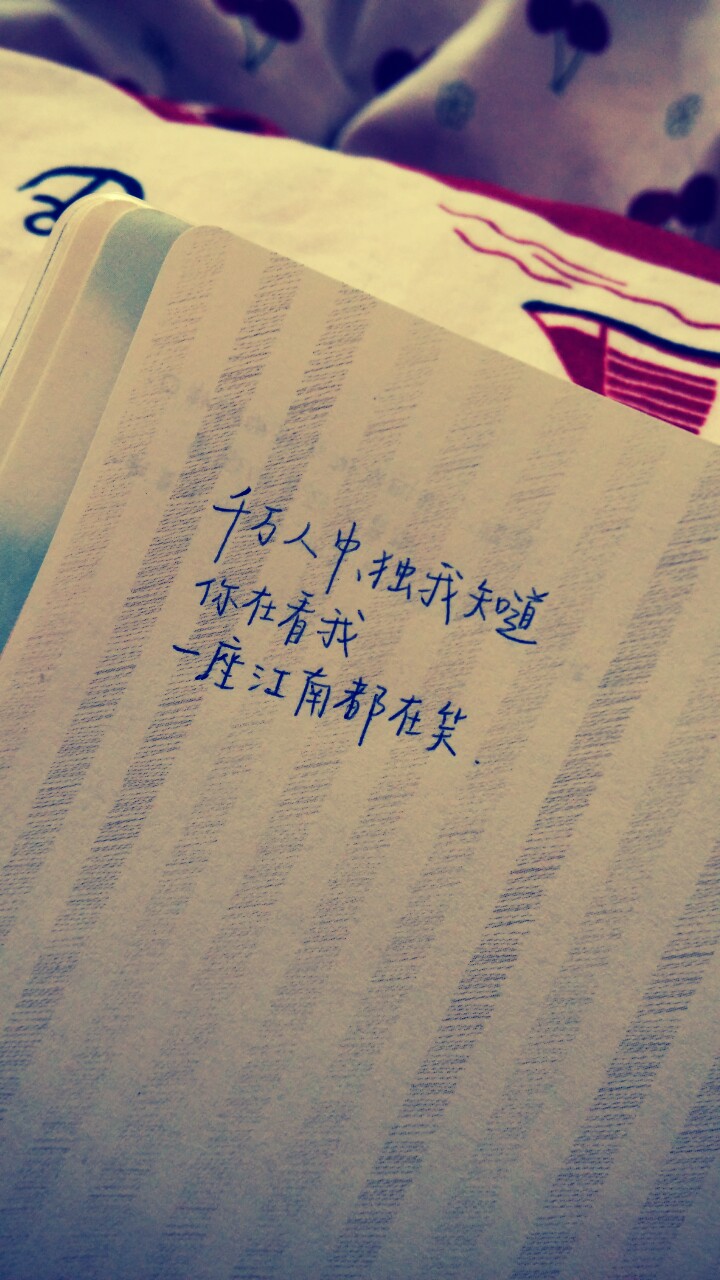 千万人中、独我知道
你在看我
一座江南都在笑.